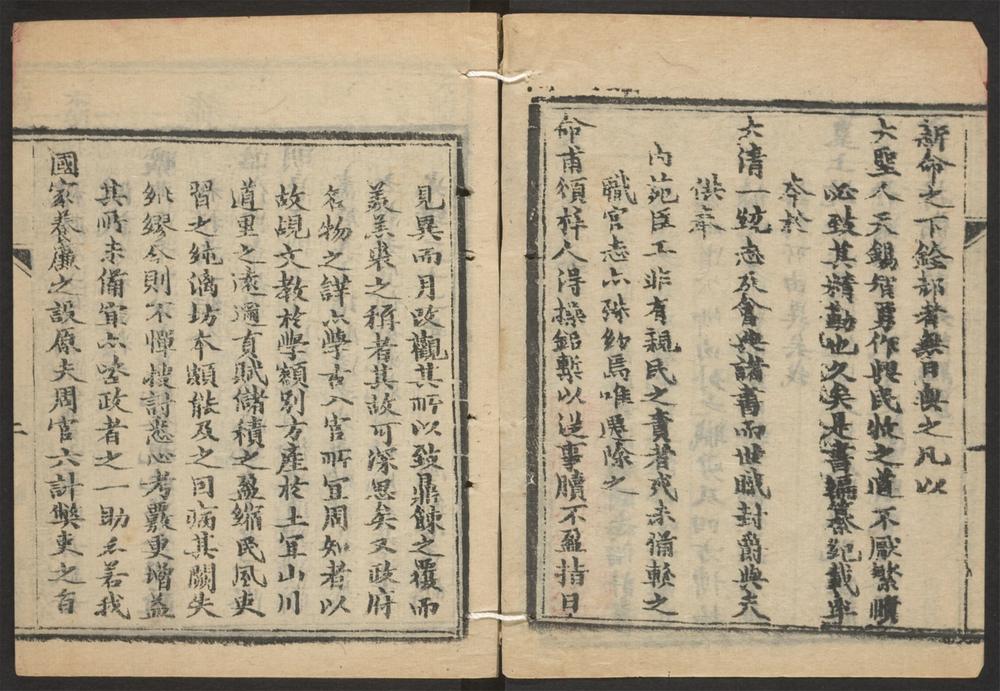 新命之下銓部者無日無之凡以
大聖人天錫智勇作興民牧之道不厭繁賾
必致其精勤也久矣是書編纂紀載率
本於
大清一統志及會典諸書而世職封爵與夫
供奉
內苑臣工非有親民之責者殘未備輕之
職官志亦殊約焉唯遷除之
命甫頒梓人得操鉛槧以從事牘不盈指日
見異而月改觀其所以致鼎餗之覆而
羔羊裘之稱者其故可深思矣又政府
名物之詳亦學古入官所宜周知者以
故覘文教於學額別方產於土宜山川
道里之遠邇貢賦儲積之盈縮民風吏
習之純漓坊本類能及之因病其闕失
紕繆今則不憚搜討悉心考覈更增益
其所未備宜亦莅政者之一助云若我
國家養廉之設原夫周官六計弊吏之旨
二